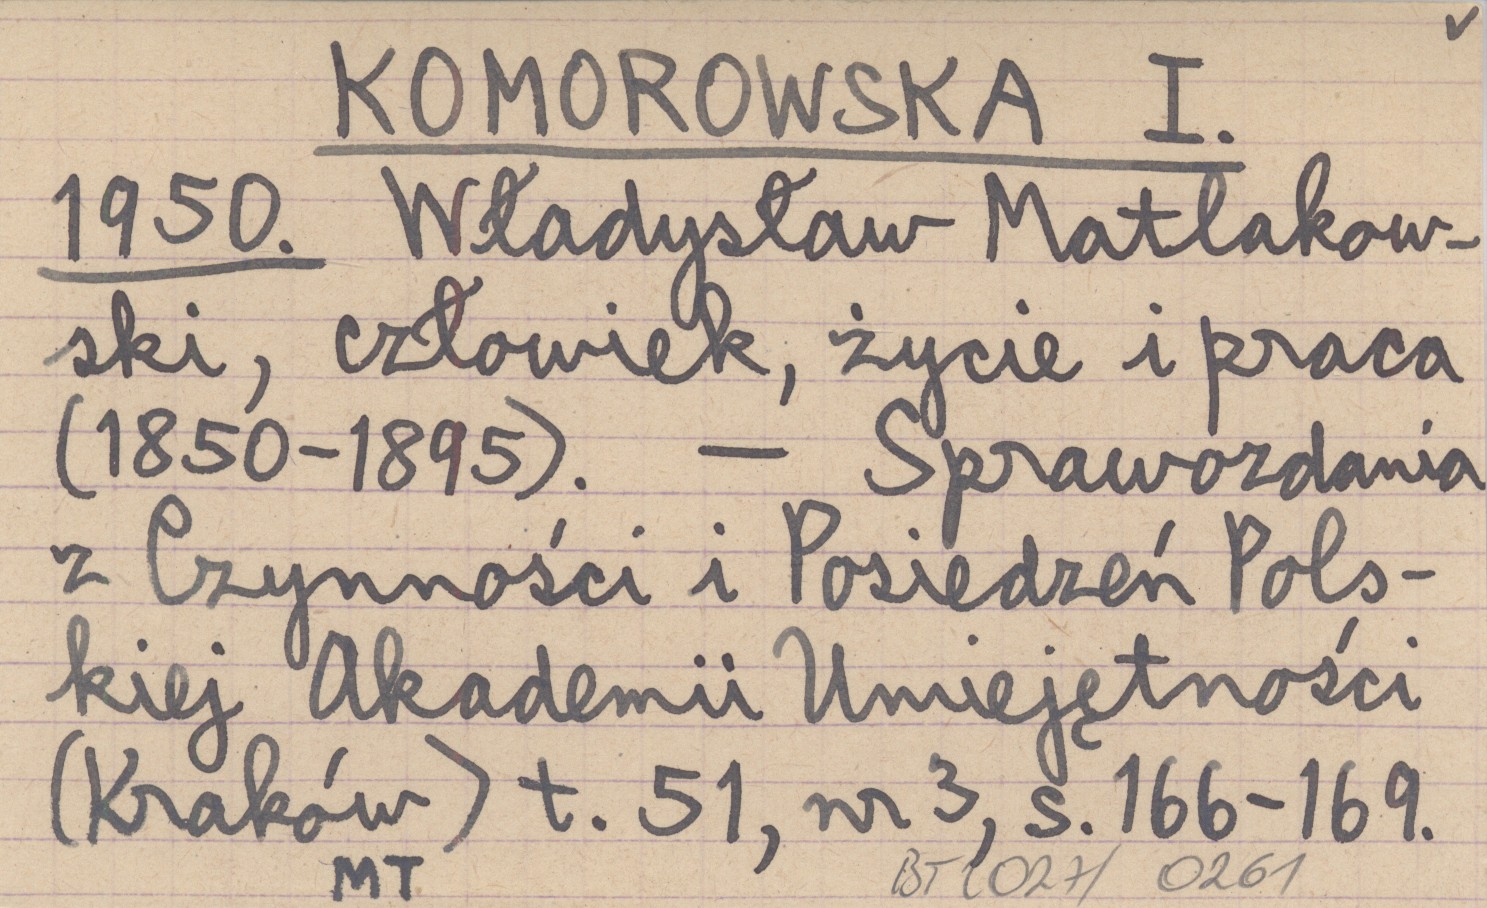 ✓
KOMOROWSKA I.
1950. Władysław Matlakow-
ski, człowiek, życie i praca
(1850-1895). — Sprawozdania
z Czynności i Posiedzeń Pols-
kiej Akademii Umiejętności
(Kraków) t. 51, nr 3, s. 166-169.
MT BT (027) 0261